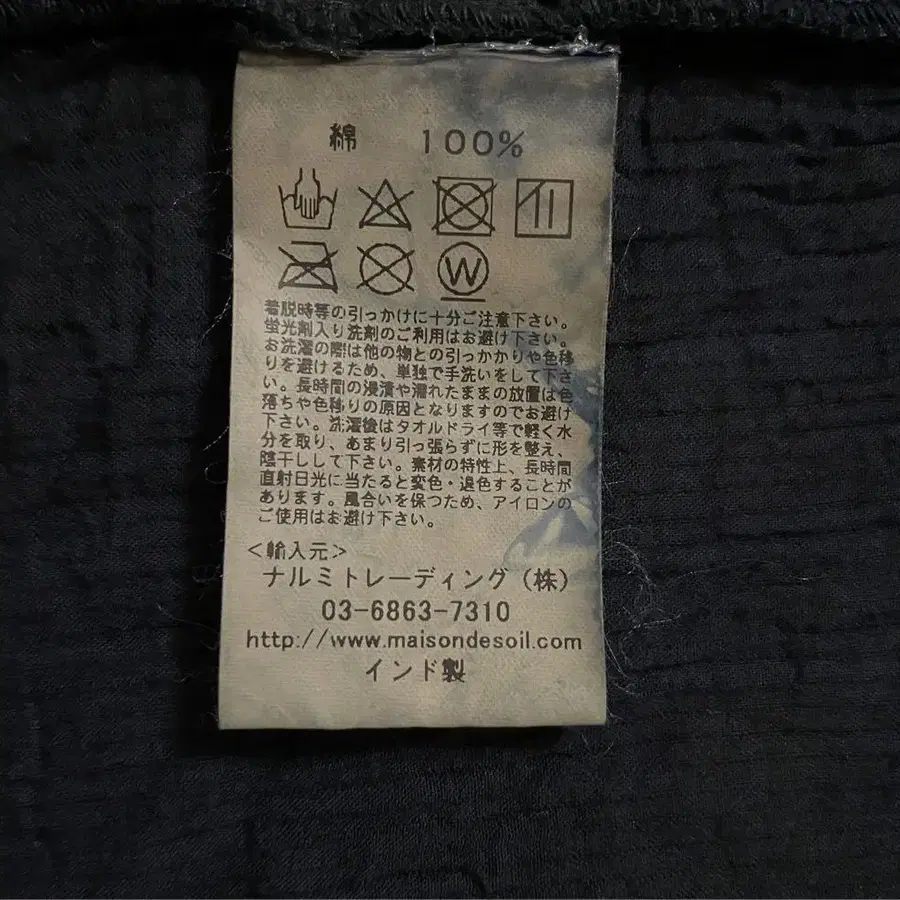 綿 100%
W
着脱時等の引っかけに十分ご注意下さい。
蛍光剤入り洗剤のご利用はお避け下さい。
お洗濯の際は他の物との引っかかりや色移
りを避けるため、単独で手洗いをして下さ
い。長時間の浸漬や濡れたままの放置は色
落ちや色移りの原因となりますのでお避け
下さい。洗濯後はタオルドライ等で軽く水
分を取り、あまり引っ張らずに形を整え、
陰干しして下さい。素材の特性上、長時間
直射日光に当たると変色・退色することが
あります。風合いを保つため、アイロンの
ご使用はお避け下さい。
＜輸入元＞
ナルミトレーディング（株）
03-6863-7310
http://www.maisondesoil.com
インド製